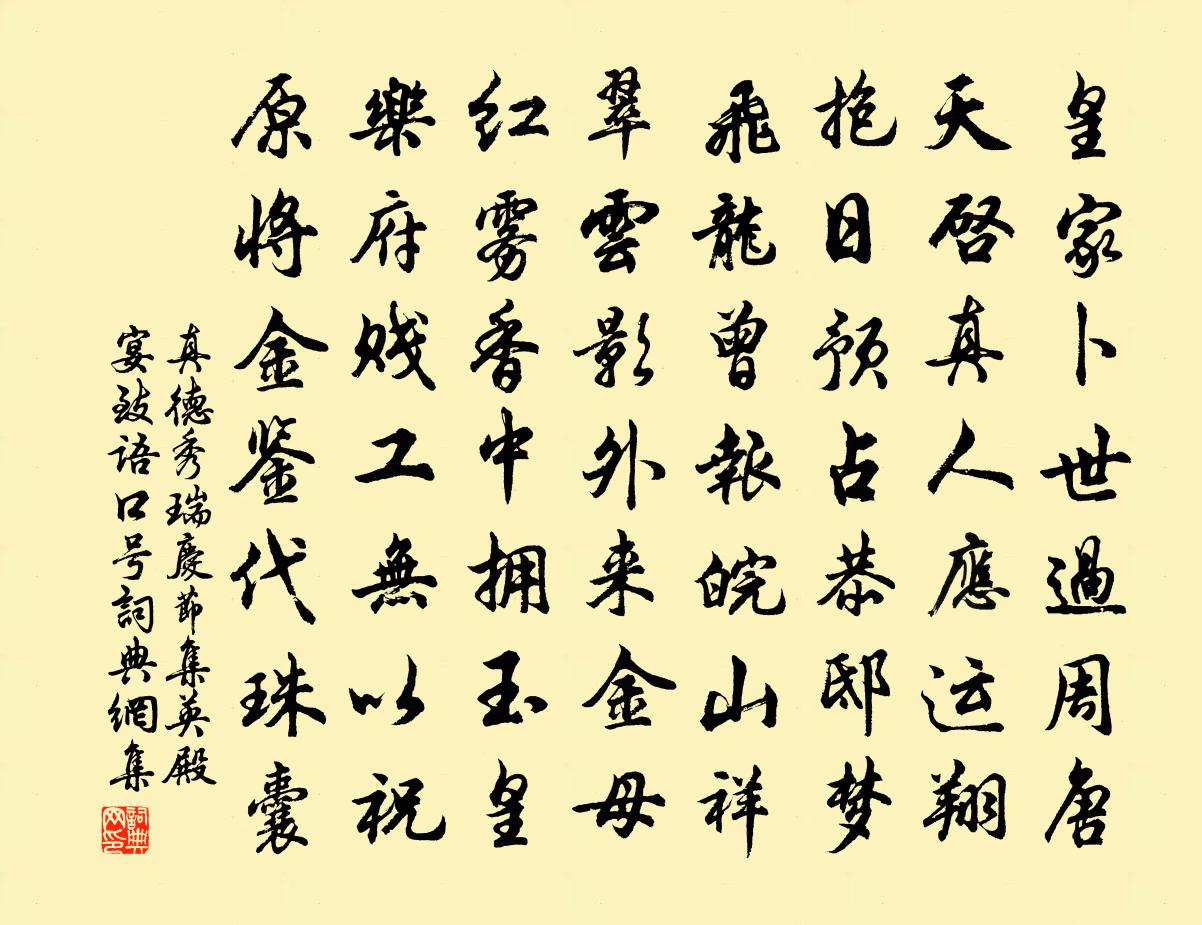 皇家卜世過周唐
天啓真人應运翔
抱日預占恭邸梦
飛龍曾報皖山祥
翠雲影外来金母
红雾香中拥玉皇
樂府贱工無以祝
原将金鉴代珠囊
真德秀瑞慶節集英殿
宴致语口号詞典網集
詞典
网印